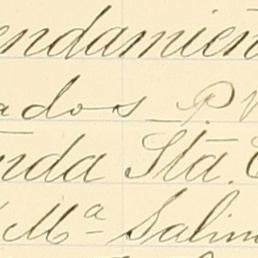 endamien
ados P.
nda Sta.
Mª Salin